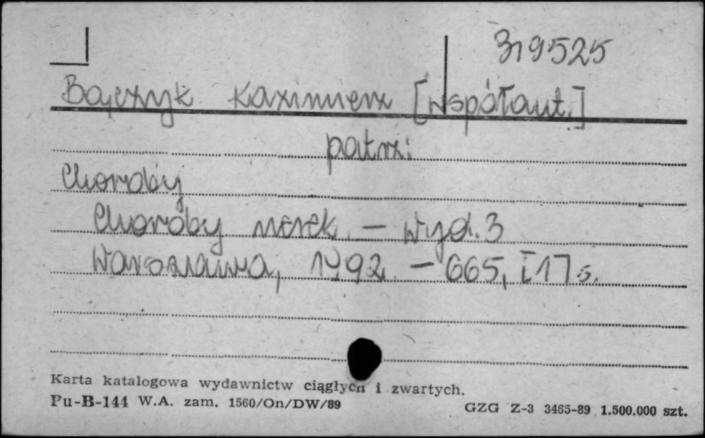 319525
Bączyk Kazimierz [współaut.]
patrz:
Choroby
Choroby nerek. – Wyd. 3
Warszawa, 1992. – 665, [17 s.
Karta katalogowa wydawnictw ciągłych i zwartych.
Pu-B-144 W.A. zam. 1560/On/DW/89
GZG Z-3 3465-89 1.500.000 szt.